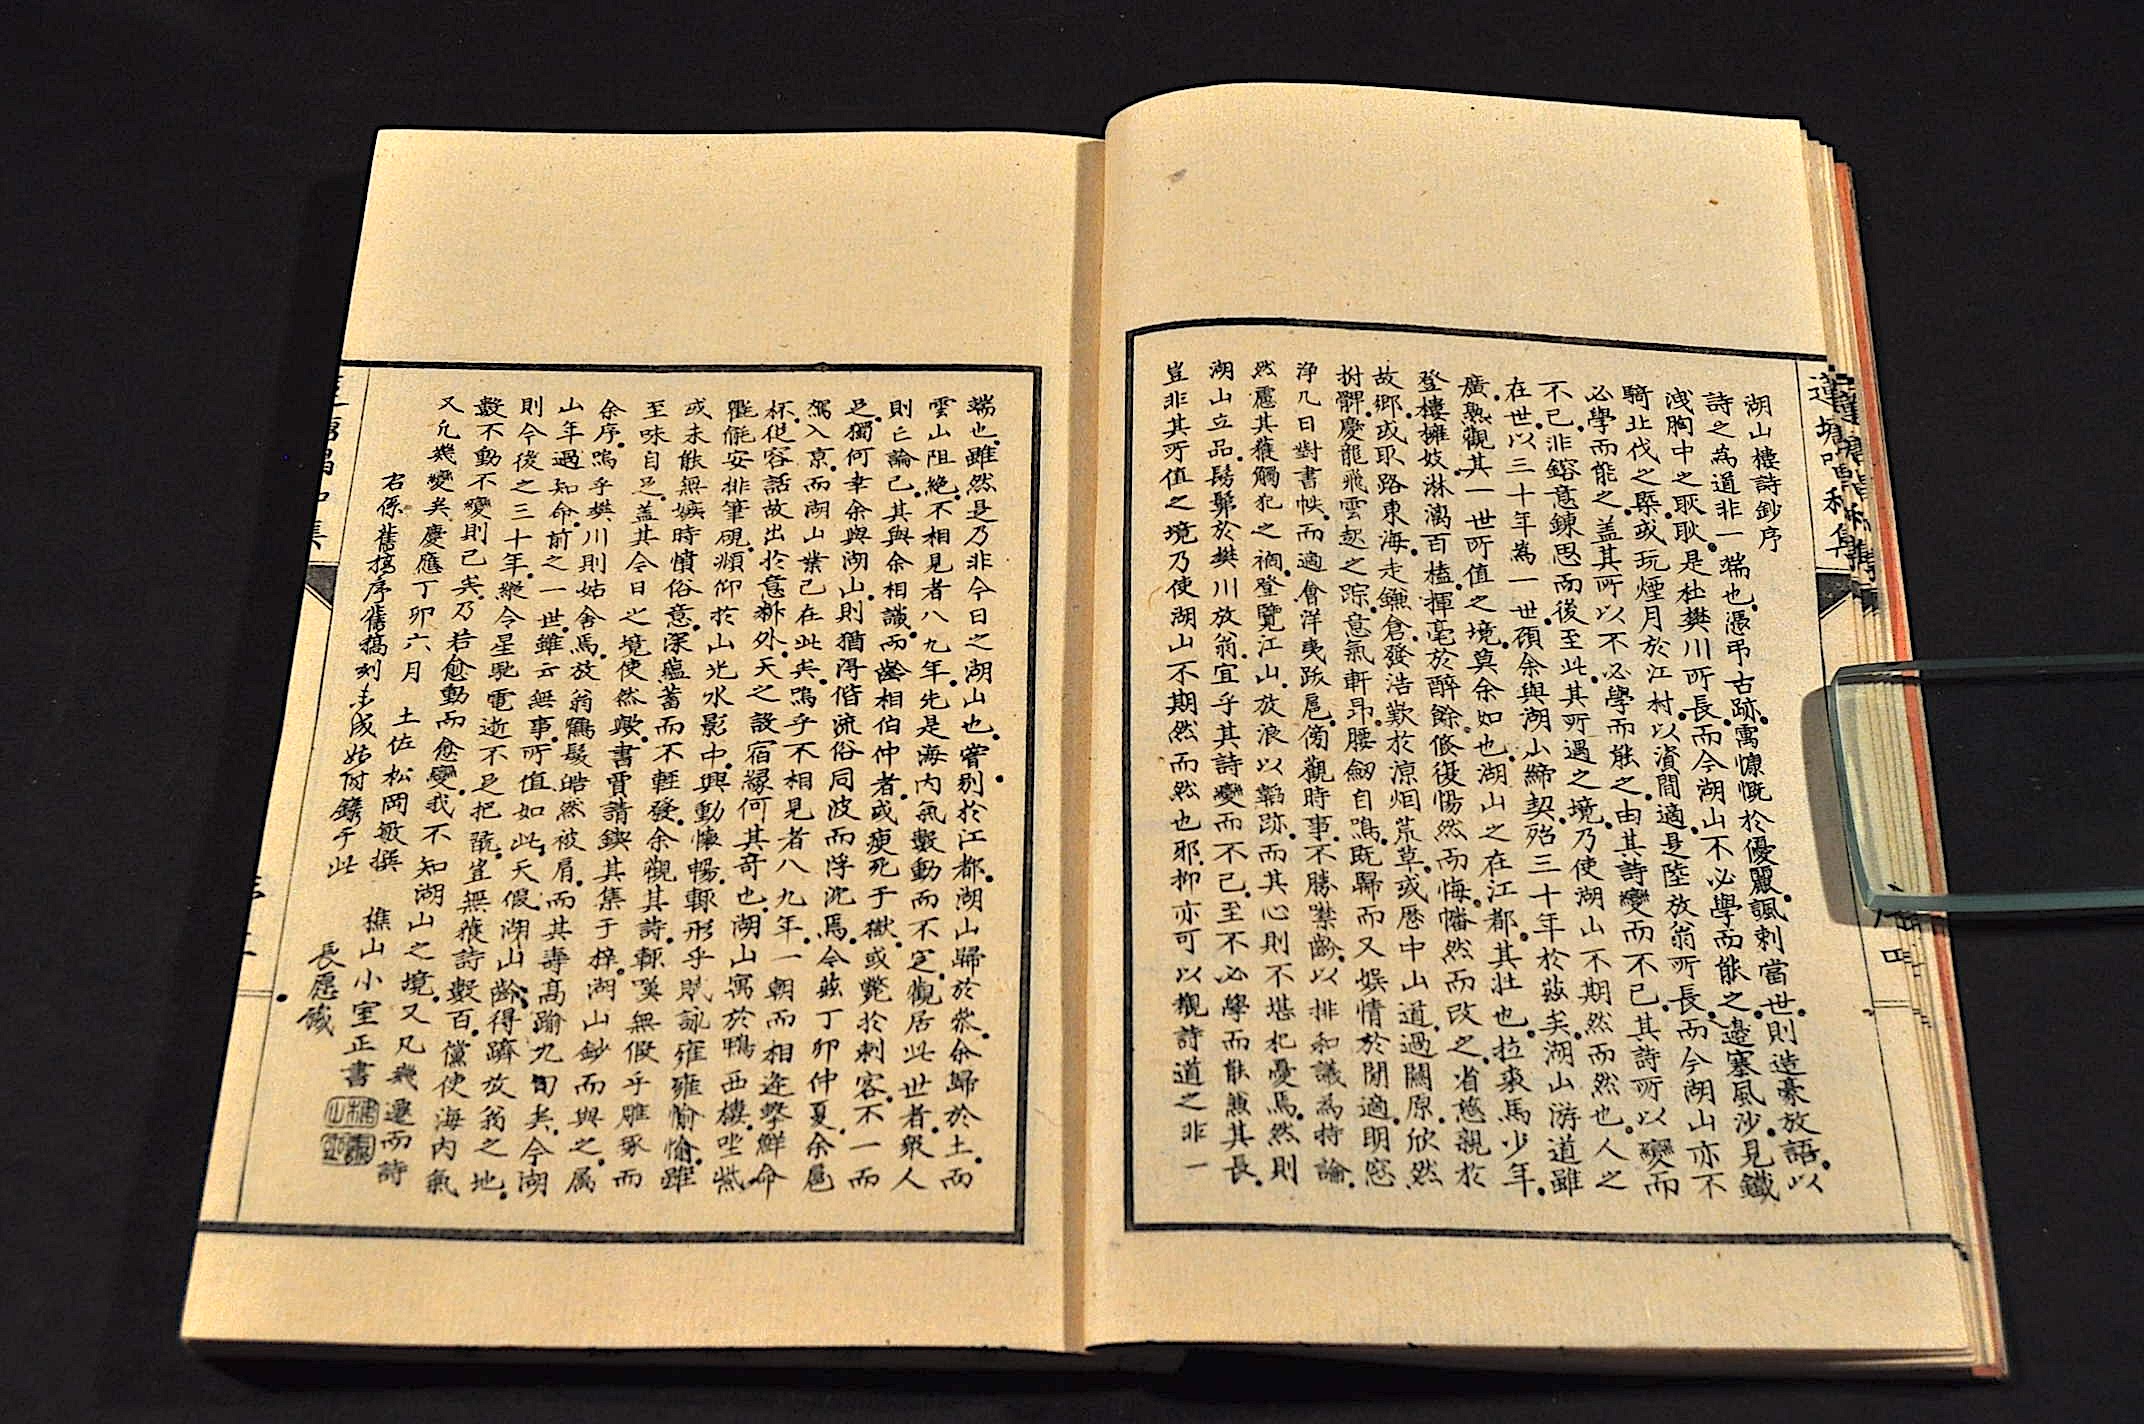 湖山樓詩鈔序
詩之為道非一端也憑弔古跡寓慷慨於優麗諷刺當世則造豪放語以
洩胸中之耿耿是杜樊川所長而今湖山不必學而能之邊塞風沙見鐵
騎北伐之槩或玩煙月於江村以資間適是陸放翁所長而今湖山亦不
必學而能之蓋其所以不必學而能之由其詩變而不已其詩所以變而
不已非鎔意錬思而後至此其所遇之境乃使湖山不期然而然也人之
在世以三十年為一世頋余與湖山締契殆三十年於茲矣湖山游道雖
廣熟觀其一世所值之境莫余如也湖山之在江都其壯也拉裘馬少年
登樓擁妓淋漓百榼揮毫於醉餘倐復惕然而悔幡然而改之省慈親於
故鄉或取路東海走鎌倉發浩歎於凉烟荒草或歷中山道過關原欣然
拊髀慶龍飛雲起之踪意氣軒昂腰劒自鳴既歸而又娱情於閒適明窓
浄几日對書帙而適會洋夷跋扈傍觀時事不勝噤齘以排和議為持論
然慮其蘀觸犯之禍登覽江山放浪以韜跡而其心則不堪杞憂焉然則
湖山立品髣髴於樊川放翁宜乎其詩變而不已至不必學而能兼其長
豈非其所值之境乃使湖山不期然而然也邪抑亦可以觀詩道之非一
端也雖然是乃非今日之湖山也甞別於江都湖山歸於參余歸於土而
雲山阻絶不相見者八九年先是海内氣數動而不定觀居此世者衆人
則亡論已其與余相識而齡相伯仲者或瘐死于獄或斃於刺客不一而
足獨何幸余與湖山則猶得偕流俗同波而浮沈焉今茲丁卯仲夏余扈
駕入京而湖山業已在此矣嗚乎不相見者八九年一朝而相逢擎鮮命
杯從容話故出於意料外天之設宿縁何其奇也湖山寓於鴨西樓坐紫
氍毹安排筆硯頫仰於山光水影中興動懷暢輙形乎賦詠雍雍愉愉雖
或未能無嫉時憤俗意深蘊蓄而不輕發余觀其詩輙嘆無假乎雕琢而
至味自足蓋其今日之境使然歟書賈請鍥其集于梓湖山鈔而與之属
余序嗚乎樊川則姑舍焉放翁鶴髮皓然被肩而其壽高踰九旬矣今湖
山年過知命前之一世雖云無事所值如此天假湖山齡得躋放翁之地
則今後之三十年縱令星馳電逝不足把翫豈無蘀詩數百儻使海内氣
數不動不變則已矣乃若愈動而愈變我不知湖山之境又凡幾遷而詩
又凡幾變矣慶應丁卯六月　土佐松岡敏撰　樵山小室正書
右係舊搞序舊稿刻未成姑附鐫于此　長愿識
蓮塘唱和集